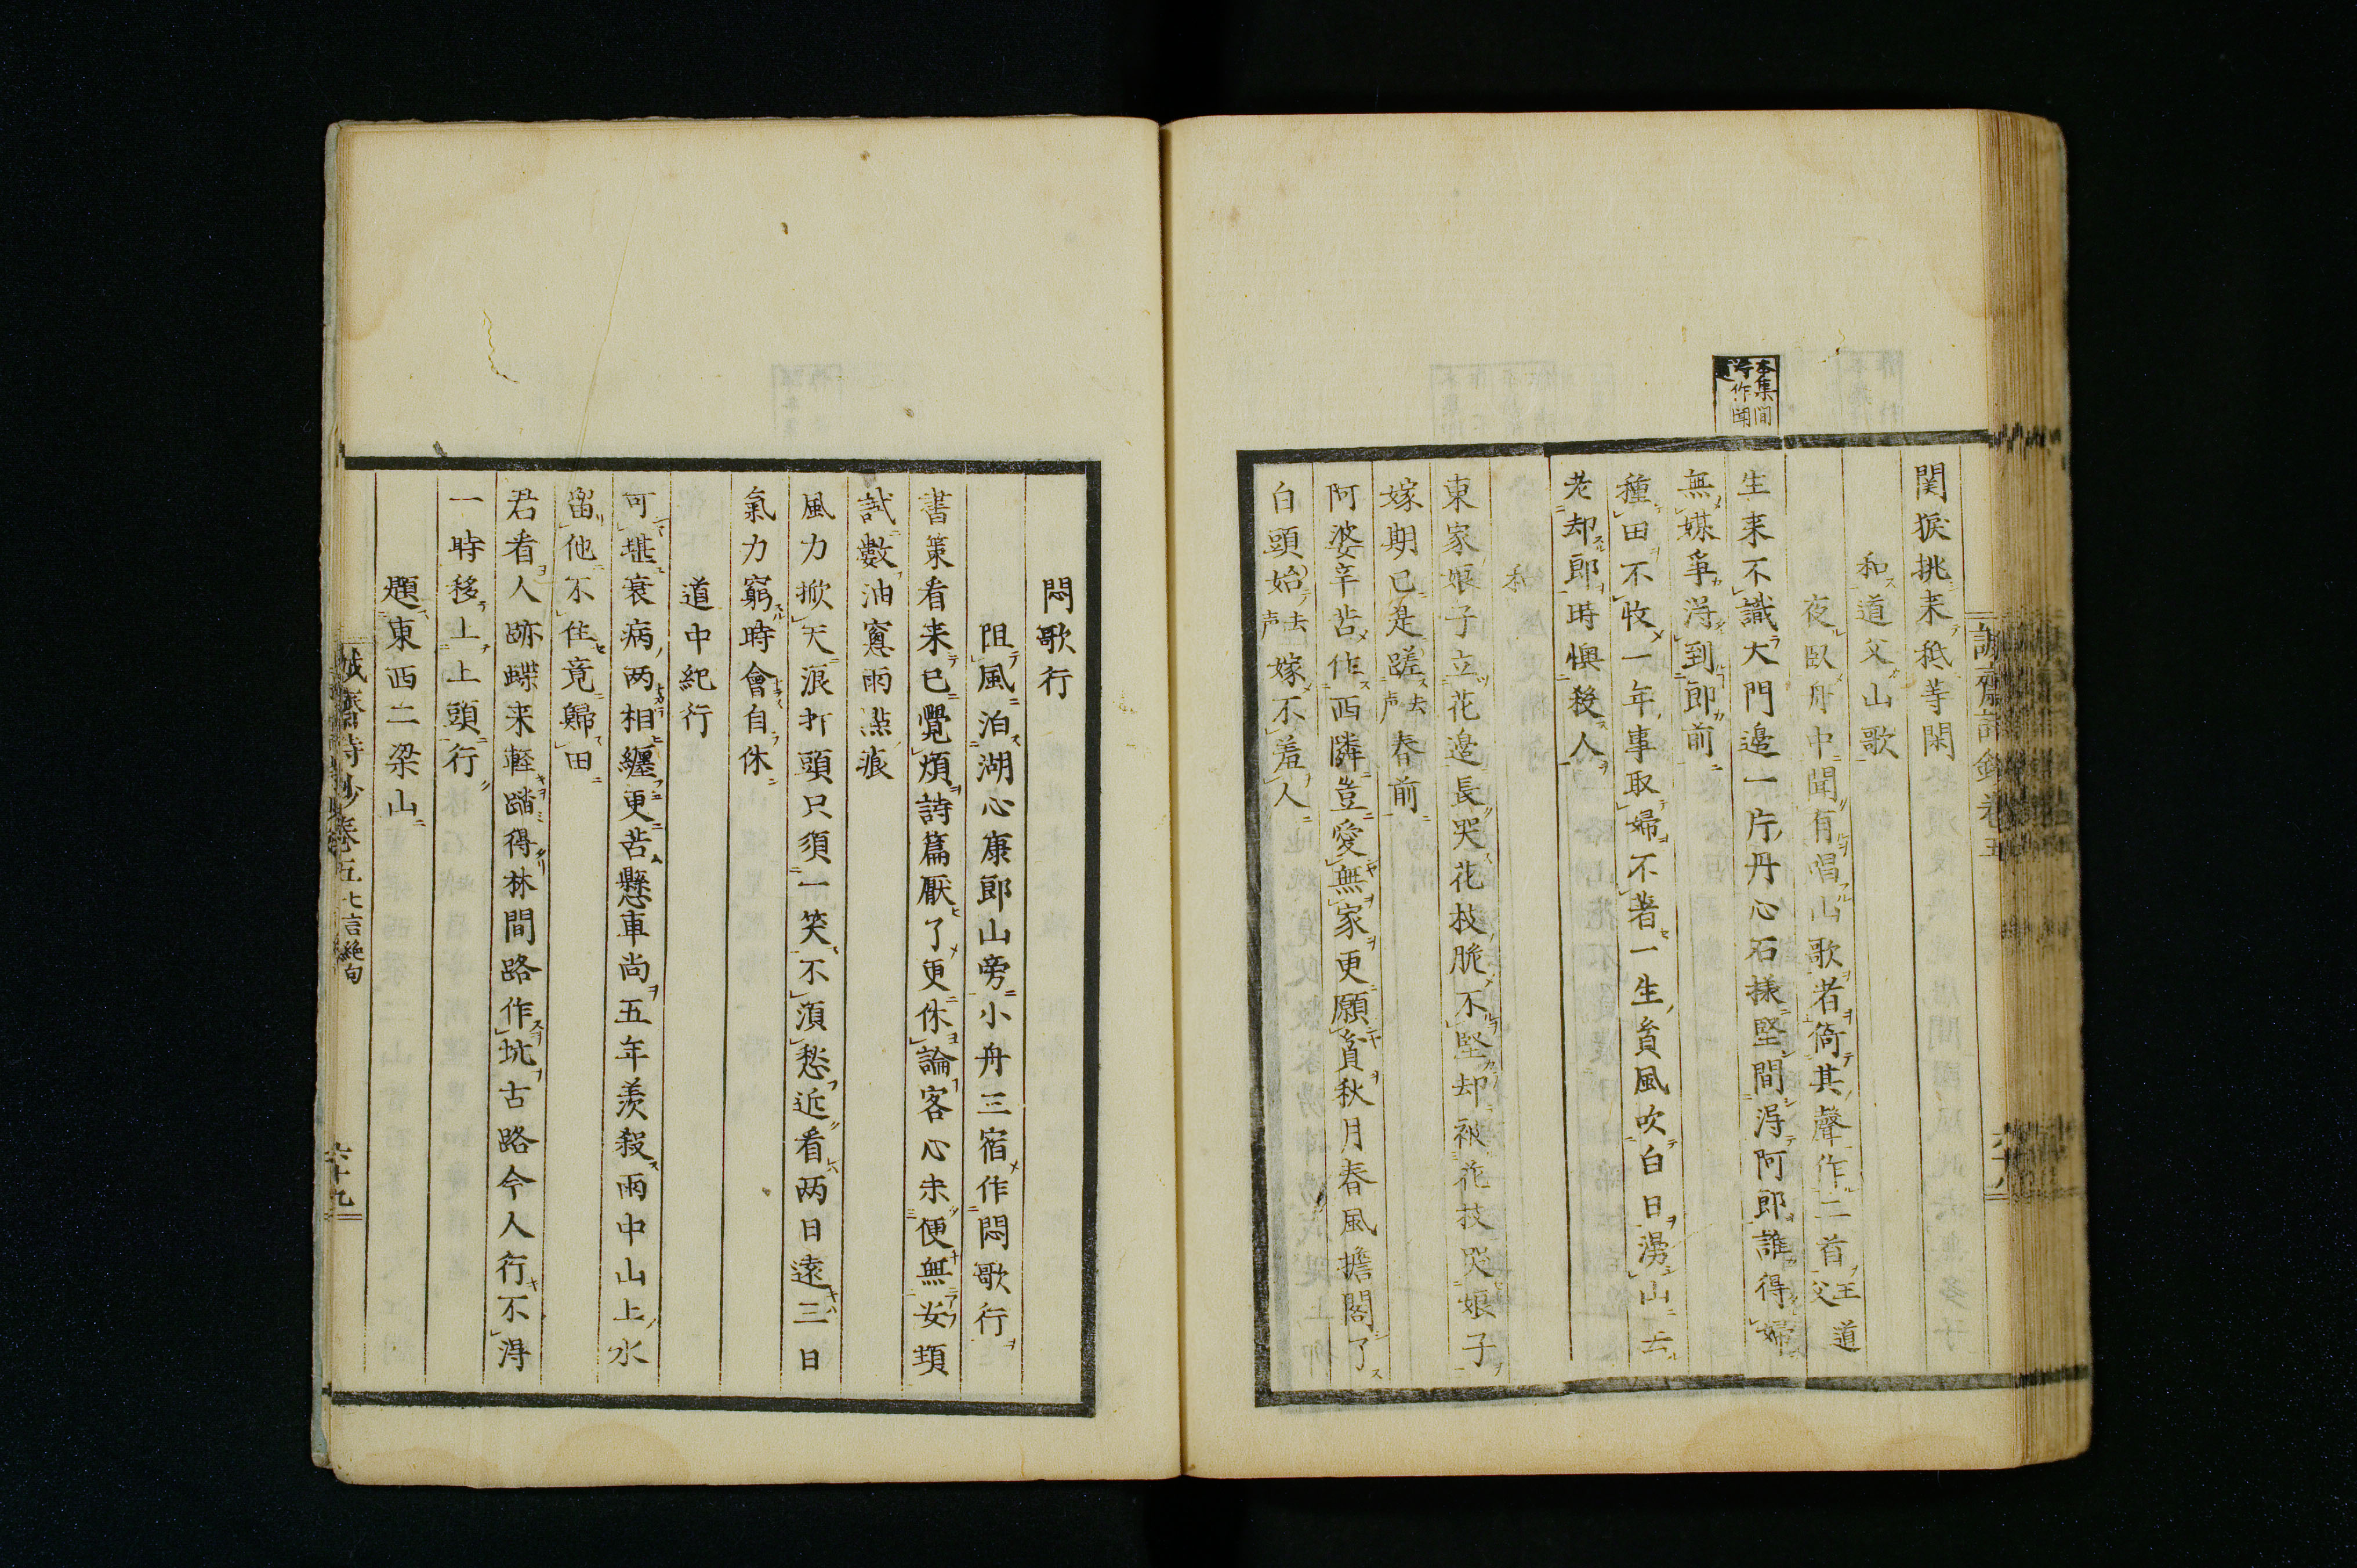 本集間
作聞
関猴挑来秪等閑
和道父山歌
夜臥舟中聞有唱山歌者倚其聲作二首王道父
生来不識大門邉一片丹心石様堅間淂阿郎誰得婦
無媒争淂到郎前
種田不收一年事取婦不著一生貧風吹白日漫山去
老却郎時懊殺人
和
東家娘子立花邉長哭花枝脆不堅却被花枝哭娘子
嫁期已是蹉去声春前
阿婆辛苦作西隣豈愛無家更願貧秋月春風擔閣了
白頭始去声嫁不羞人
悶歌行
阻風泊湖心康郎山旁小舟三宿作悶歌行
書策看来已覺煩詩篇厭了更休論客心未便無安頓
試數油窻雨點痕
風力掀天浪打頭只須一笑不須愁近看两日遠三日
氣力窮時會自休
道中紀行
可堪衰病两相纏更苦懸車尚五年羨殺雨中山上水
留他不住竟歸田
君看人跡蝶来輕踏得林間路作坑古路今人行不淂
一時移上上頭行
題東西二梁山
誠齋詩鈔卷五七言絶句
六十九